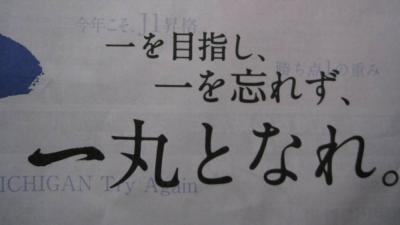 今年こそ、J1昇格
一を目指し、
勝ち点1の重み
一を忘れず、
一丸となれ。
ICHIGAN Try Again